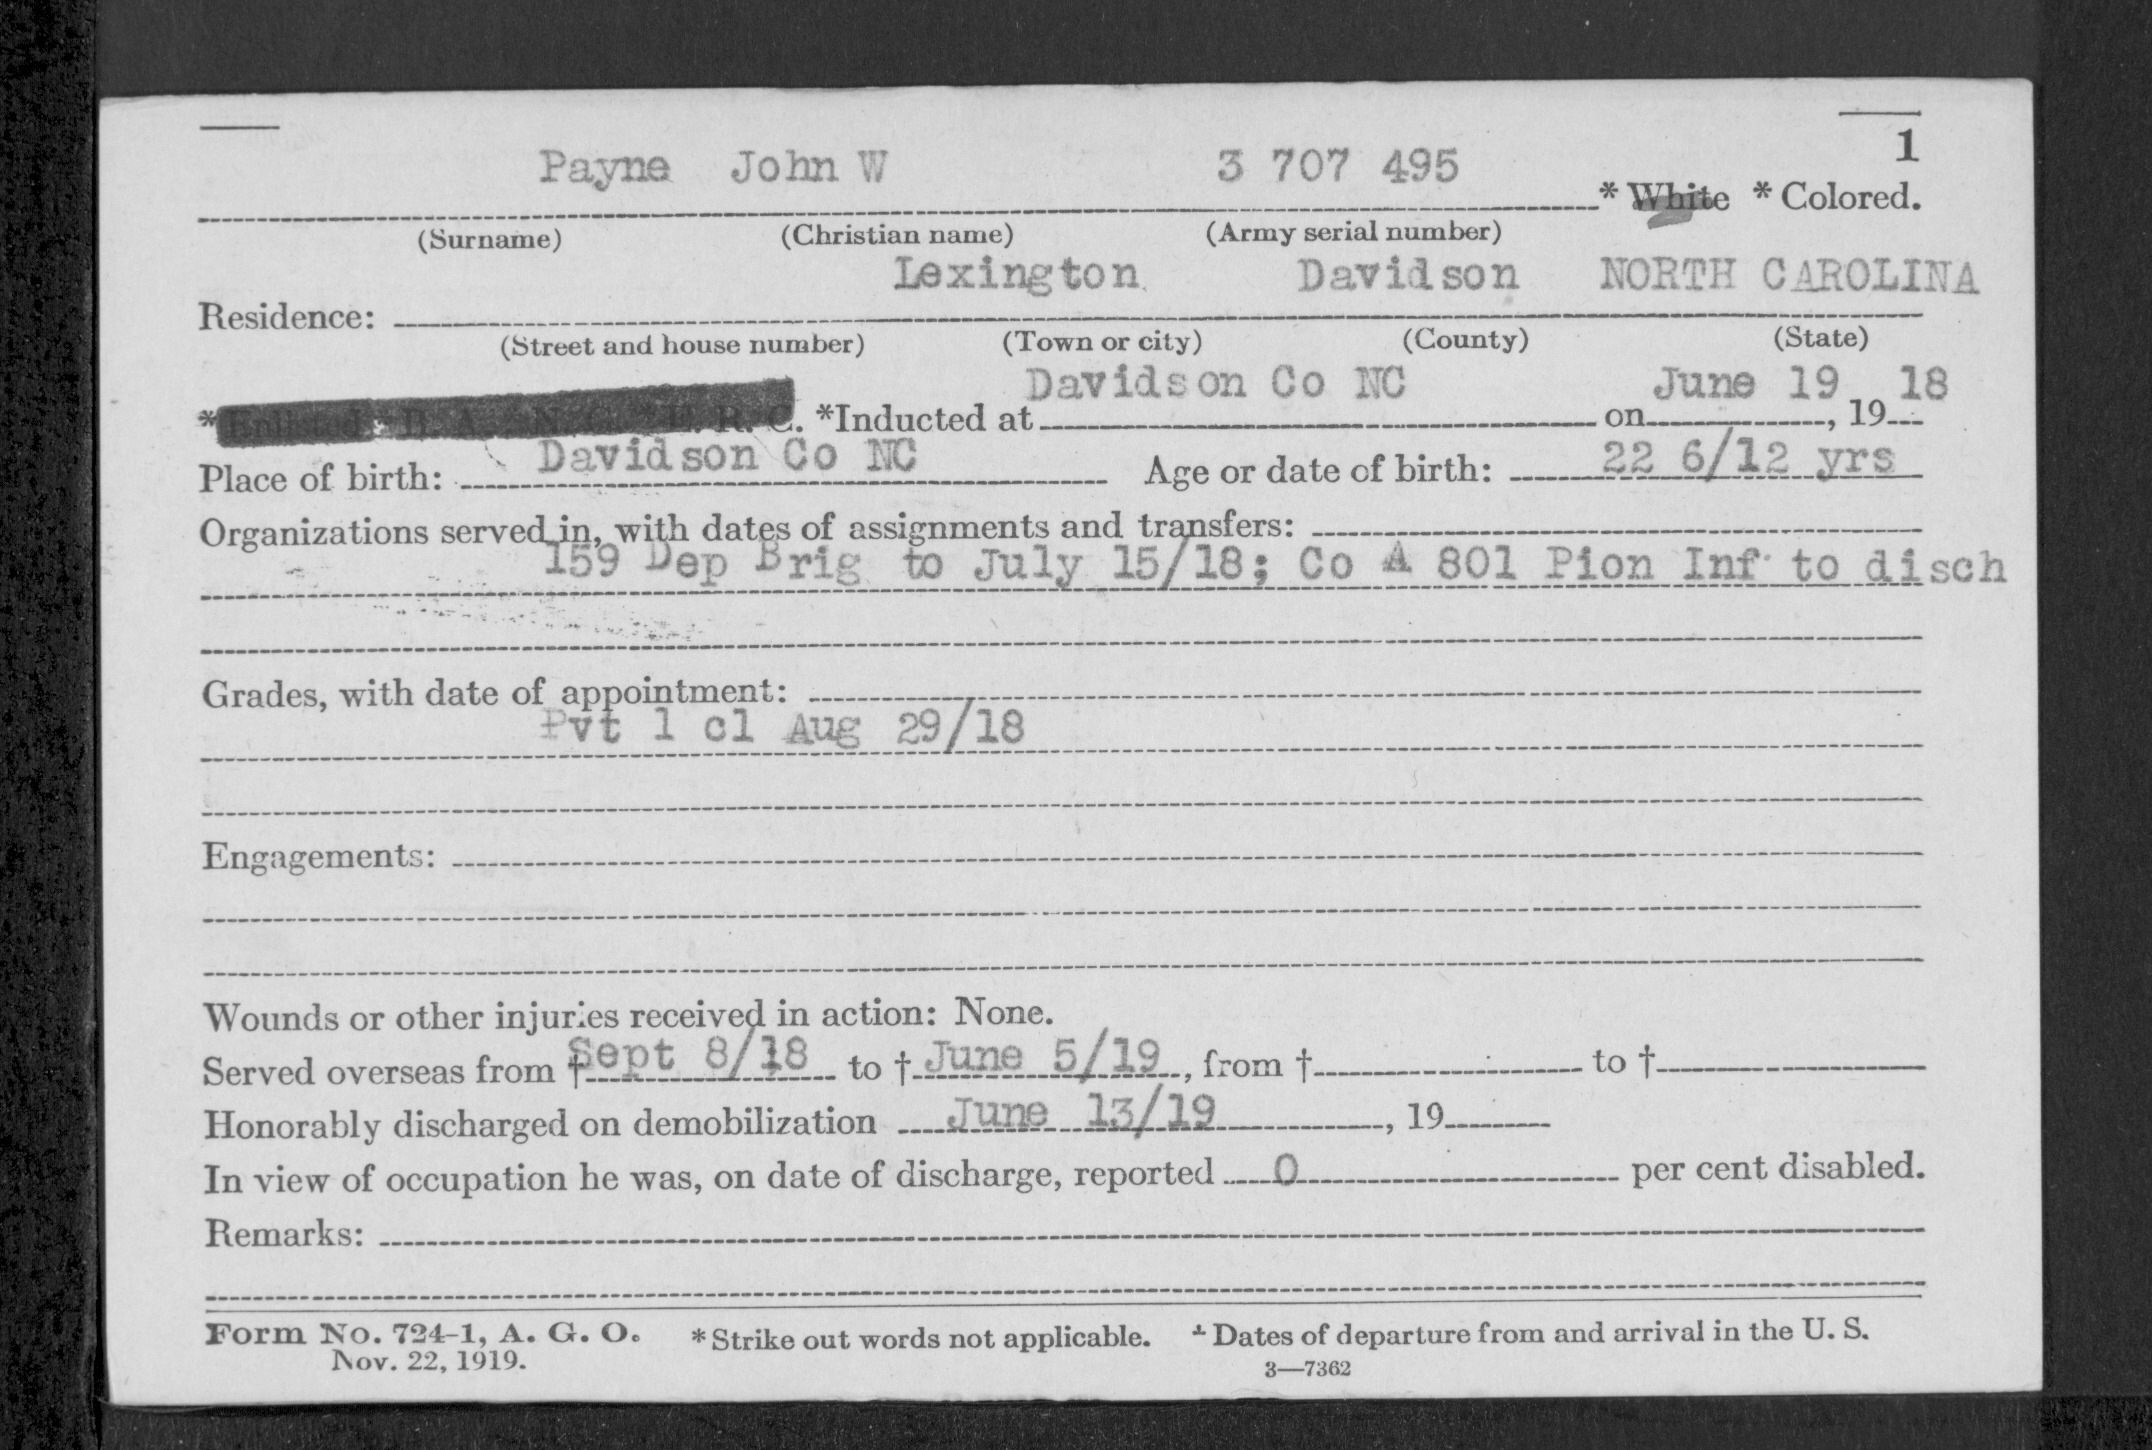 1
Payne John W 3 707 495 * White * Colored.
(Surname) (Christian name) (Army serial number)
Lexington Davidson NORTH CAROLINA
Residence:
(Street and house number) (Town or city) (County) (State)
Davidson Co NC June 19 18
*Enlisted * R. A., N. G. * E. R. C. *Inducted at on , 19
Davidson Co NC 22 6/12 yrs
Place of birth: Age or date of birth:
Organizations served in, with dates of assignments and transfers:
159 Dep Brig to July 15/18; Co A 801 Pion Inf to disch
Grades, with date of appointment:
Pvt 1 cl Aug 29/18
Engagements:
Wounds or other injuries received in action: None.
Served overseas from † Sept 8/18 to † June 5/19, from † to †
Honorably discharged on demobilization June 13/19, 19
In view of occupation he was, on date of discharge, reported 0 per cent disabled.
Remarks:
Form No. 724-1, A. G. O. * Strike out words not applicable. † Dates of departure from and arrival in the U. S.
Nov. 22, 1919. 3—7362